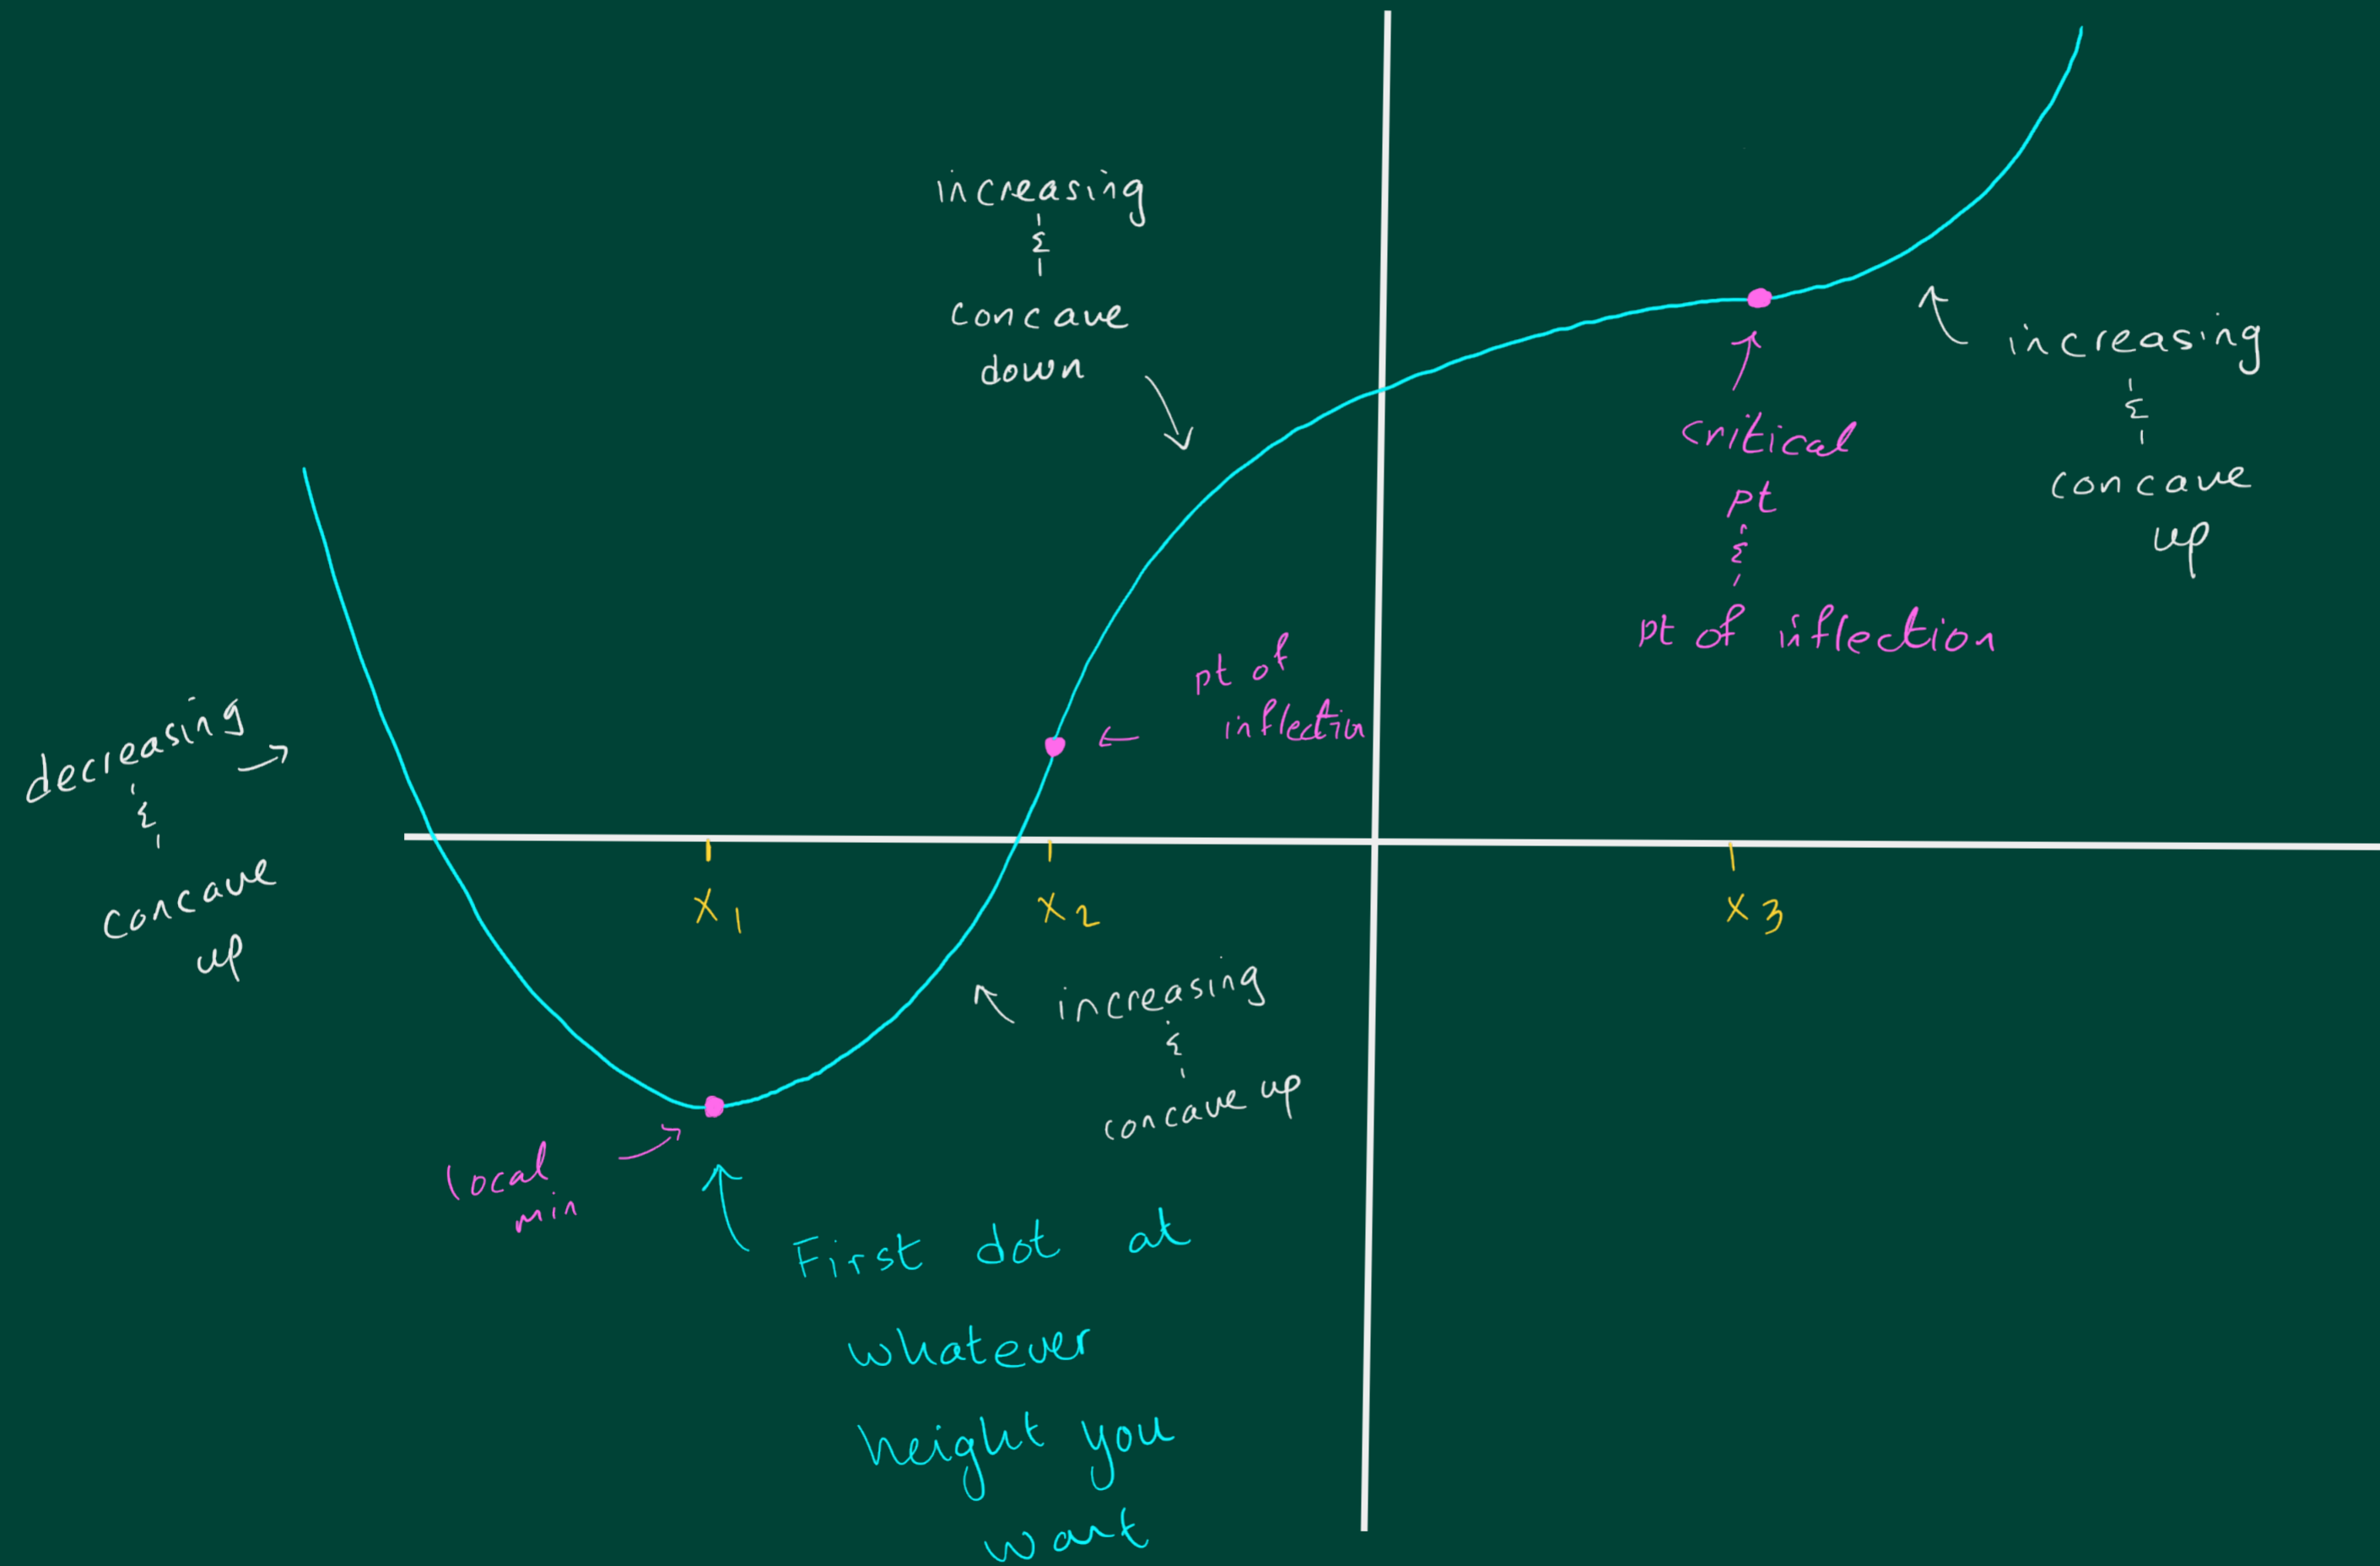 increasing
&
concave
down
increasing
&
concave
up
critical
pt
&
pt of inflection
pt of
inflection
decreasing
&
concave
up
x1
x2
x3
increasing
&
concave up
local
min
First dot at
whatever
height you
want